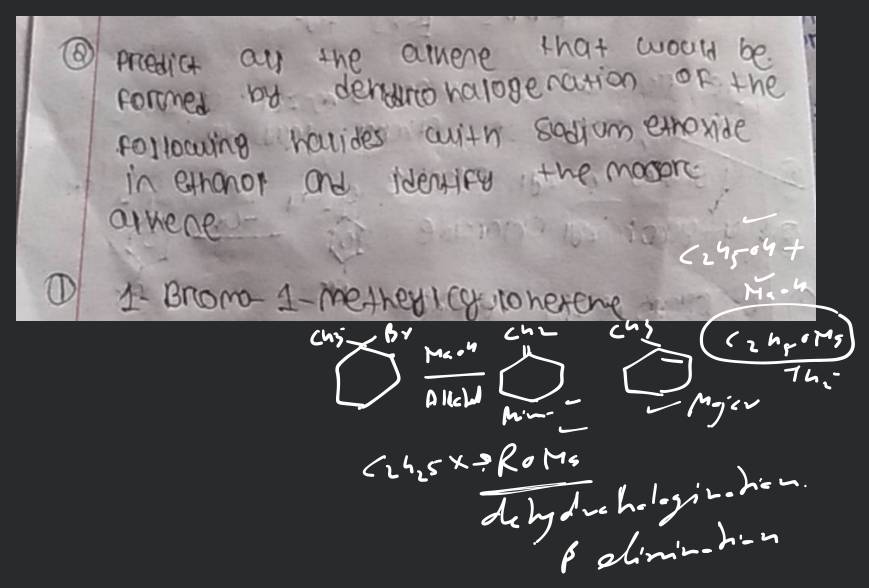 ② predict all the alkene that would be
formed by dehydrohalogenation of the
following halides with sodium ethoxide
in ethanol and identify the major
alkene
① 1- Bromo- 1-methylcyclohexene
C2H5OH +
NaOH
C2H5ONa
CH3 Br
NaOH
Alcohol
CH2
CH3
Major
C2H5X → RONa
dehydrohalogination.
β elimination